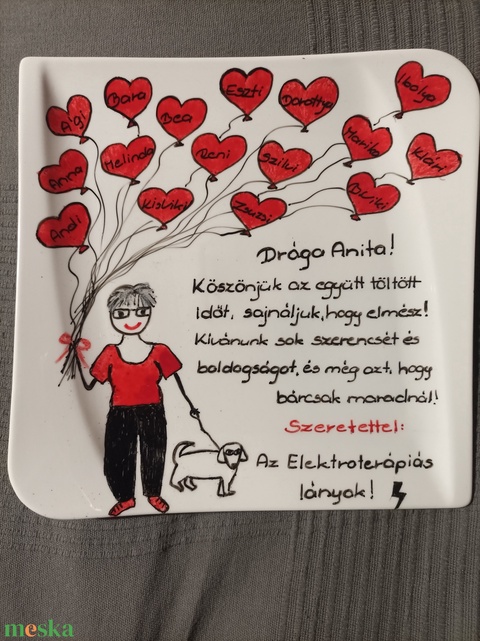 Ági
Bara
Bea
Eszti
Dorottya
Ibolya
Anna
Melinda
Reni
Szilvi
Marika
Klári
Andi
Kisviki
Zsuzsi
B.Viki
Drága Anita!
Köszönjük az együtt töltött
időt, sajnáljuk, hogy elmész!
Kívánunk sok szerencsét és
boldogságot, és még azt, hogy
bárcsak maradnál!
Szeretettel:
Az Elektroterápiás
lányok!
meska